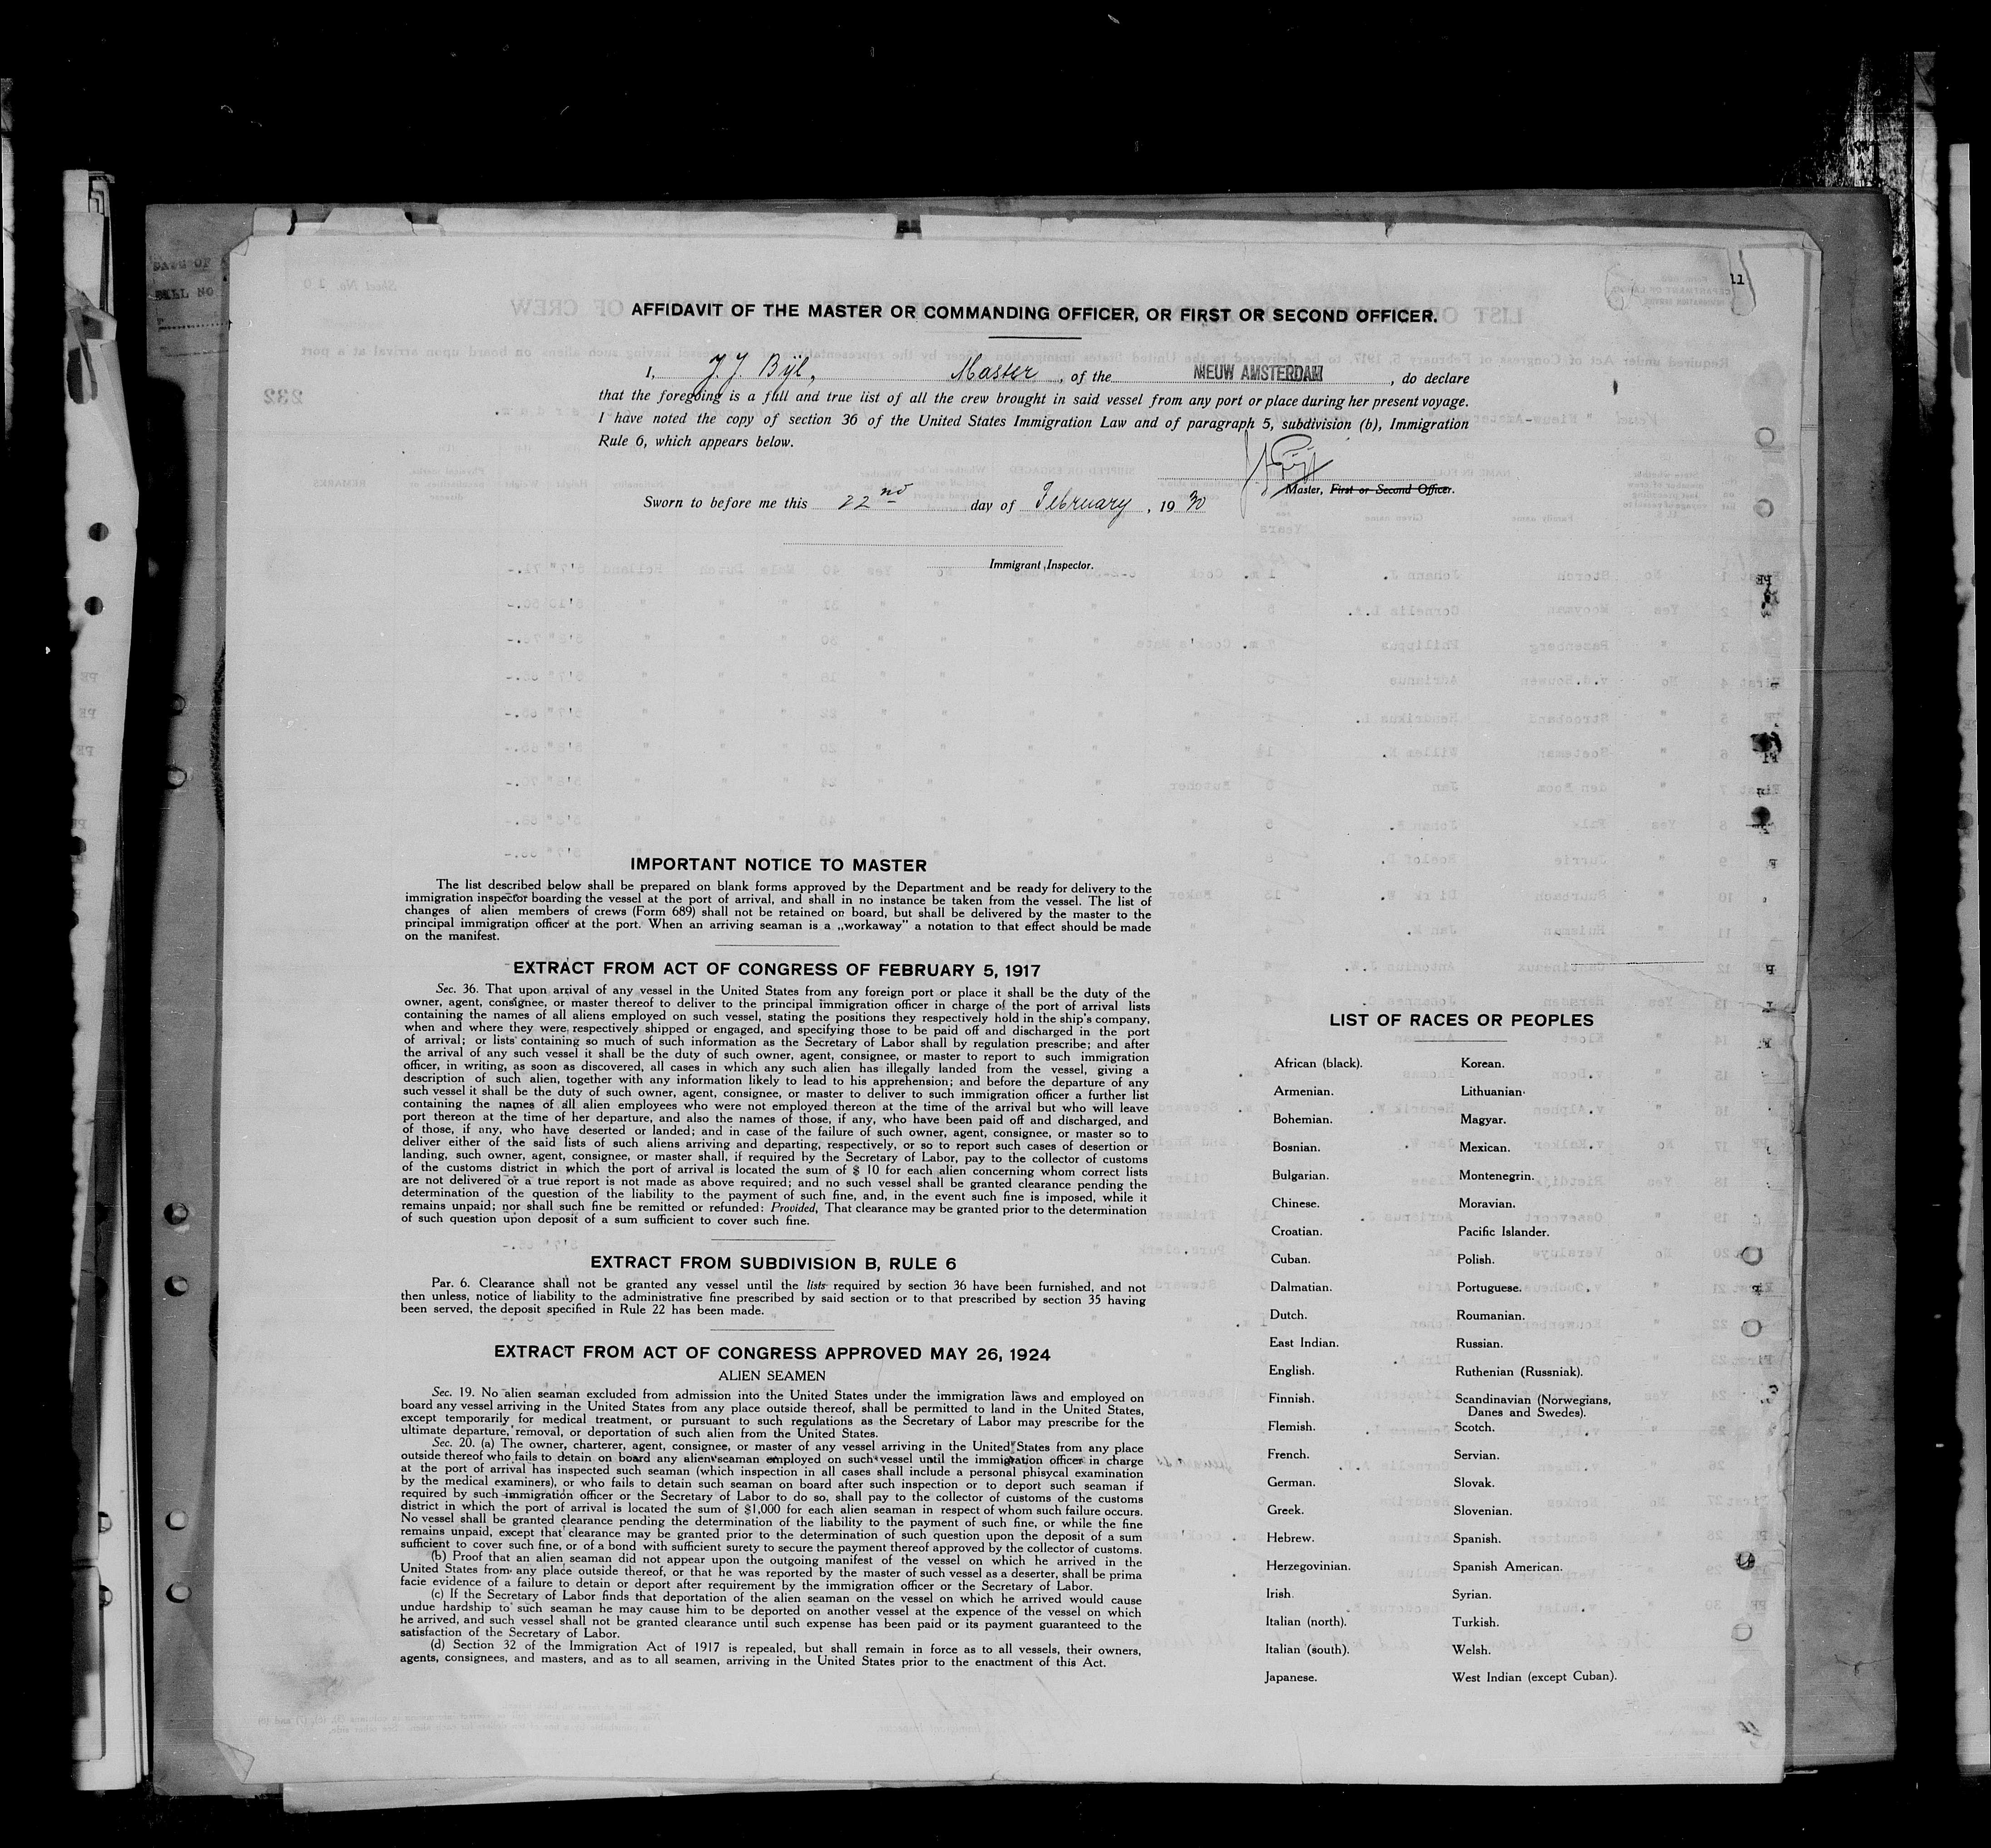 11
AFFIDAVIT OF THE MASTER OR COMMANDING OFFICER, OR FIRST OR SECOND OFFICER.
I, J. J. Bijl, Master, of the NIEUW AMSTERDAM, do declare
that the foregoing is a full and true list of all the crew brought in said vessel from any port or place during her present voyage.
I have noted the copy of section 36 of the United States Immigration Law and of paragraph 5, subdivision (b), Immigration
Rule 6, which appears below.
Master, First or Second Officer.
Sworn to before me this 22nd day of February, 1930
Immigrant Inspector.
IMPORTANT NOTICE TO MASTER
The list described below shall be prepared on blank forms approved by the Department and be ready for delivery to the
immigration inspector boarding the vessel at the port of arrival, and shall in no instance be taken from the vessel. The list of
changes of alien members of crews (Form 689) shall not be retained on board, but shall be delivered by the master to the
principal immigration officer at the port. When an arriving seaman is a „workaway" a notation to that effect should be made
on the manifest.
EXTRACT FROM ACT OF CONGRESS OF FEBRUARY 5, 1917
Sec. 36. That upon arrival of any vessel in the United States from any foreign port or place it shall be the duty of the
owner, agent, consignee, or master thereof to deliver to the principal immigration officer in charge of the port of arrival lists
containing the names of all aliens employed on such vessel, stating the positions they respectively hold in the ship's company,
when and where they were respectively shipped or engaged, and specifying those to be paid off and discharged in the port
of arrival; or lists containing so much of such information as the Secretary of Labor shall by regulation prescribe; and after
the arrival of any such vessel it shall be the duty of such owner, agent, consignee, or master to report to such immigration
officer, in writing, as soon as discovered, all cases in which any such alien has illegally landed from the vessel, giving a
description of such alien, together with any information likely to lead to his apprehension; and before the departure of any
such vessel it shall be the duty of such owner, agent, consignee, or master to deliver to such immigration officer a further list
containing the names of all alien employees who were not employed thereon at the time of the arrival but who will leave
port thereon at the time of her departure, and also the names of those, if any, who have been paid off and discharged, and
of those, if any, who have deserted or landed; and in case of the failure of such owner, agent, consignee, or master so to
deliver either of the said lists of such aliens arriving and departing, respectively, or so to report such cases of desertion or
landing, such owner, agent, consignee, or master shall, if required by the Secretary of Labor, pay to the collector of customs
of the customs district in which the port of arrival is located the sum of $ 10 for each alien concerning whom correct lists
are not delivered or a true report is not made as above required; and no such vessel shall be granted clearance pending the
determination of the question of the liability to the payment of such fine, and, in the event such fine is imposed, while it
remains unpaid; nor shall such fine be remitted or refunded: Provided, That clearance may be granted prior to the determination
of such question upon deposit of a sum sufficient to cover such fine.
EXTRACT FROM SUBDIVISION B, RULE 6
Par. 6. Clearance shall not be granted any vessel until the lists required by section 36 have been furnished, and not
then unless, notice of liability to the administrative fine prescribed by said section or to that prescribed by section 35 having
been served, the deposit specified in Rule 22 has been made.
EXTRACT FROM ACT OF CONGRESS APPROVED MAY 26, 1924
ALIEN SEAMEN
Sec. 19. No alien seaman excluded from admission into the United States under the immigration laws and employed on
board any vessel arriving in the United States from any place outside thereof, shall be permitted to land in the United States,
except temporarily for medical treatment, or pursuant to such regulations as the Secretary of Labor may prescribe for the
ultimate departure, removal, or deportation of such alien from the United States.
Sec. 20. (a) The owner, charterer, agent, consignee, or master of any vessel arriving in the United States from any place
outside thereof who fails to detain on board any alien seaman employed on such vessel until the immigration officer in charge
at the port of arrival has inspected such seaman (which inspection in all cases shall include a personal phisycal examination
by the medical examiners), or who fails to detain such seaman on board after such inspection or to deport such seaman if
required by such immigration officer or the Secretary of Labor to do so, shall pay to the collector of customs of the customs
district in which the port of arrival is located the sum of $1,000 for each alien seaman in respect of whom such failure occurs.
No vessel shall be granted clearance pending the determination of the liability to the payment of such fine, or while the fine
remains unpaid, except that clearance may be granted prior to the determination of such question upon the deposit of a sum
sufficient to cover such fine, or of a bond with sufficient surety to secure the payment thereof approved by the collector of customs.
(b) Proof that an alien seaman did not appear upon the outgoing manifest of the vessel on which he arrived in the
United States from any place outside thereof, or that he was reported by the master of such vessel as a deserter, shall be prima
facie evidence of a failure to detain or deport after requirement by the immigration officer or the Secretary of Labor.
(c) If the Secretary of Labor finds that deportation of the alien seaman on the vessel on which he arrived would cause
undue hardship to such seaman he may cause him to be deported on another vessel at the expence of the vessel on which
he arrived, and such vessel shall not be granted clearance until such expense has been paid or its payment guaranteed to the
satisfaction of the Secretary of Labor.
(d) Section 32 of the Immigration Act of 1917 is repealed, but shall remain in force as to all vessels, their owners,
agents, consignees, and masters, and as to all seamen, arriving in the United States prior to the enactment of this Act.
LIST OF RACES OR PEOPLES
African (black).
Armenian.
Bohemian.
Bosnian.
Bulgarian.
Chinese.
Croatian.
Cuban.
Dalmatian.
Dutch.
East Indian.
English.
Finnish.
Flemish.
French.
German.
Greek.
Hebrew.
Herzegovinian.
Irish.
Italian (north).
Italian (south).
Japanese.
Korean.
Lithuanian.
Magyar.
Mexican.
Montenegrin.
Moravian.
Pacific Islander.
Polish.
Portuguese.
Roumanian.
Russian.
Ruthenian (Russniak).
Scandinavian (Norwegians,
Danes and Swedes).
Scotch.
Servian.
Slovak.
Slovenian.
Spanish.
Spanish American.
Syrian.
Turkish.
Welsh.
West Indian (except Cuban).